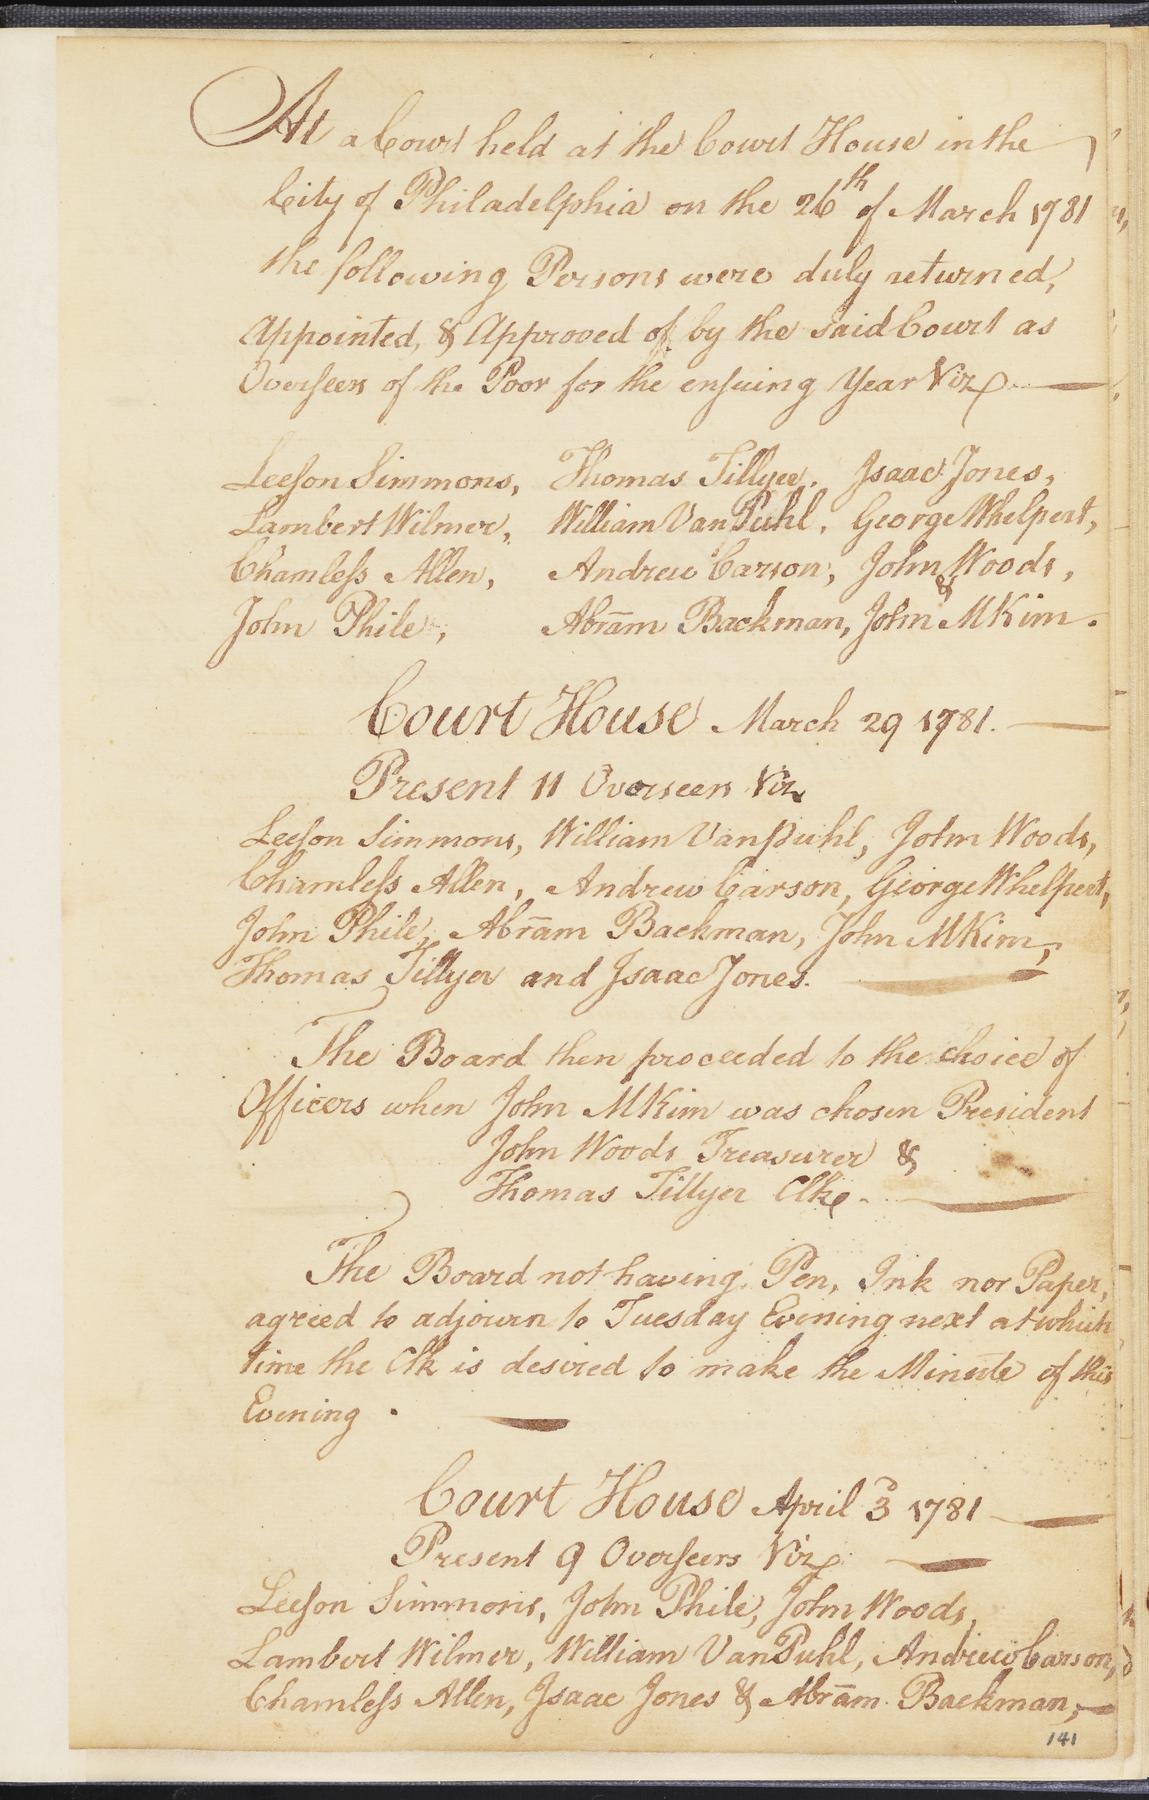 At a Court held at the Court House in the
City of Philadelphia on the 26th of March 1781
the following Persons were duly returned,
Appointed, & Approved of by the said Court as
Overseers of the Poor for the ensuing Year Viz
Leeson Simmons, Thomas Tillyer, Isaac Jones,
Lambert Wilmer, William VanPuhl, George Whelpert,
Chamless Allen, Andrew Carson, John Woods, &
John Phile, Abrām Backman, John MKim.
Court House March 29 1781.
Present 11 Overseers Viz
Leeson Simmons, William VanPuhl, John Woods,
Chamless Allen, Andrew Carson, George Whelpert,
John Phile, Abrām Backman, John MKim,
Thomas Tillyer and Isaac Jones.
The Board then proceeded to the choice of
Officers when John MKim was chosen President
John Woods Treasurer &
Thomas Tillyer Clk.
The Board not having Pen, Ink nor Paper,
agreed to adjourn to Tuesday Evening next at which
time the Clk is desired to make the Minute of this
Evening.
Court House April 3 1781
Present 9 Overseers Viz
Leeson Simmons, John Phile, John Woods,
Lambert Wilmer, William VanPuhl, Andrew Carson,
Chamless Allen, Isaac Jones & Abrām Backman,
141